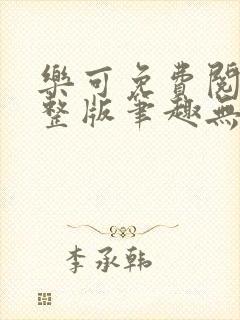 樂可免費閱
整版筆趣無
李承韩